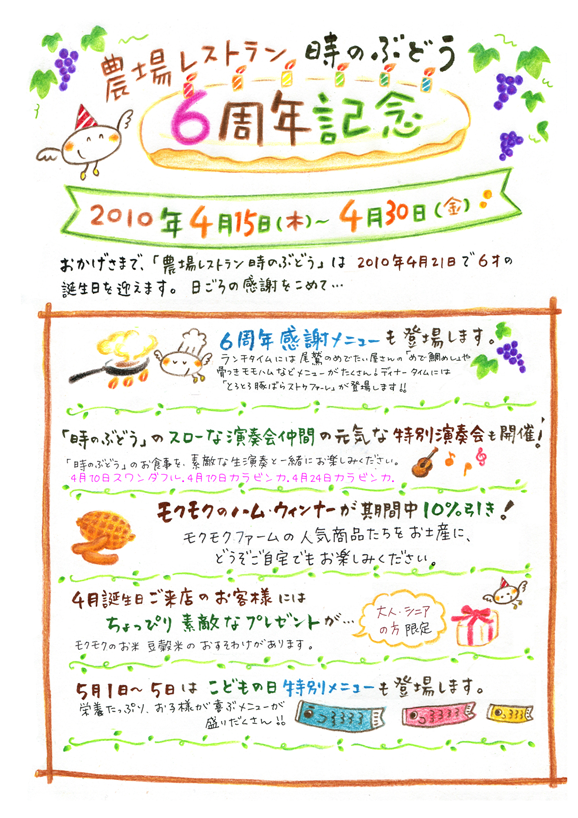 農場レストラン 時のぶどう
6周年記念
2010年4月15日(木)～4月30日(金)
おかげさまで、「農場レストラン 時のぶどう」は 2010年4月21日で6才の
誕生日を迎えます。日ごろの感謝をこめて…
6周年感謝メニューも登場します。
ランチタイムには尾鷲のめでたい屋さんの「めで鯛めし」や
骨つきモモハムなどメニューがたくさん♪ディナータイムには
「とろとろ豚ばらストゥファート」が登場します!!
「時のぶどう」のスローな演奏会仲間の元気な特別演奏会も開催!
「時のぶどう」のお食事を、素敵な生演奏と一緒にお楽しみください。
4月10日スワンダフル、4月17日カラビンカ、4月24日カラビンカ、
モクモクのハム・ウィンナーが期間中10%引き!
モクモクファームの人気商品たちをお土産に、
どうぞご自宅でもお楽しみください。
4月誕生日ご来店のお客様には
ちょっぴり素敵なプレゼントが…
大人・シニア
の方限定
モクモクのお米 豆穀米のおすそわけがあります。
5月1日～5日はこどもの日特別メニューも登場します。
栄養たっぷり、お子様が喜ぶメニューが
盛りだくさん!!